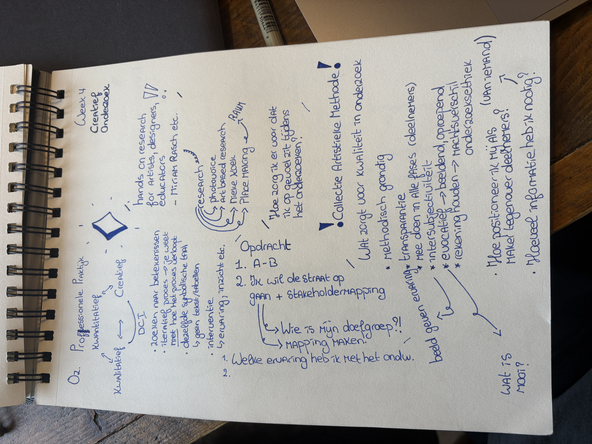 Oz. Proffessionele Praktijk
Week 4
Creatief
Onderzoek
Kwantitatief
Kwalitatief
Creatief
DCI
• zoeken naar betekenissen
• iteratief proces → je weet niet hoe het proces verloopt
• dezelfde symbolische
↳ geen tekst/
interventie
↳ ervaring, inzicht etc.
hands on research
for artists, designers,
educators
- Miriam Rasch etc..
research
photovoice
art based research
Place Making
Ruim
Hoe zorg ik er voor dat
ik op gevoel zit tijdens
het onderzoeken?
Opdracht
1. A-B
2. Ik wil de straat op
gaan + stakeholdermapping
→ Wie is mijn doelgroep??
→ Mapping maken!
1. Welke ervaring heb ik met het ondw.
2.
! Collectie Artistieke Methode!
Wat zorgt voor kwaliteit in onderzoek
• Methodisch grondig
• transparantie
• Mee doen in alle fases (deelnemers)
• intersubjectiviteit
• evocatief → beeldend, oproepend
• rekening houden → machtsverschil
onderzoeksethiek
beeld geven ervaring
(van iemand)
• Hoe positioneer ik mij als
maker tegenover deelnemers?
• Hoeveel informatie heb ik nodig?
wat is
mooi?